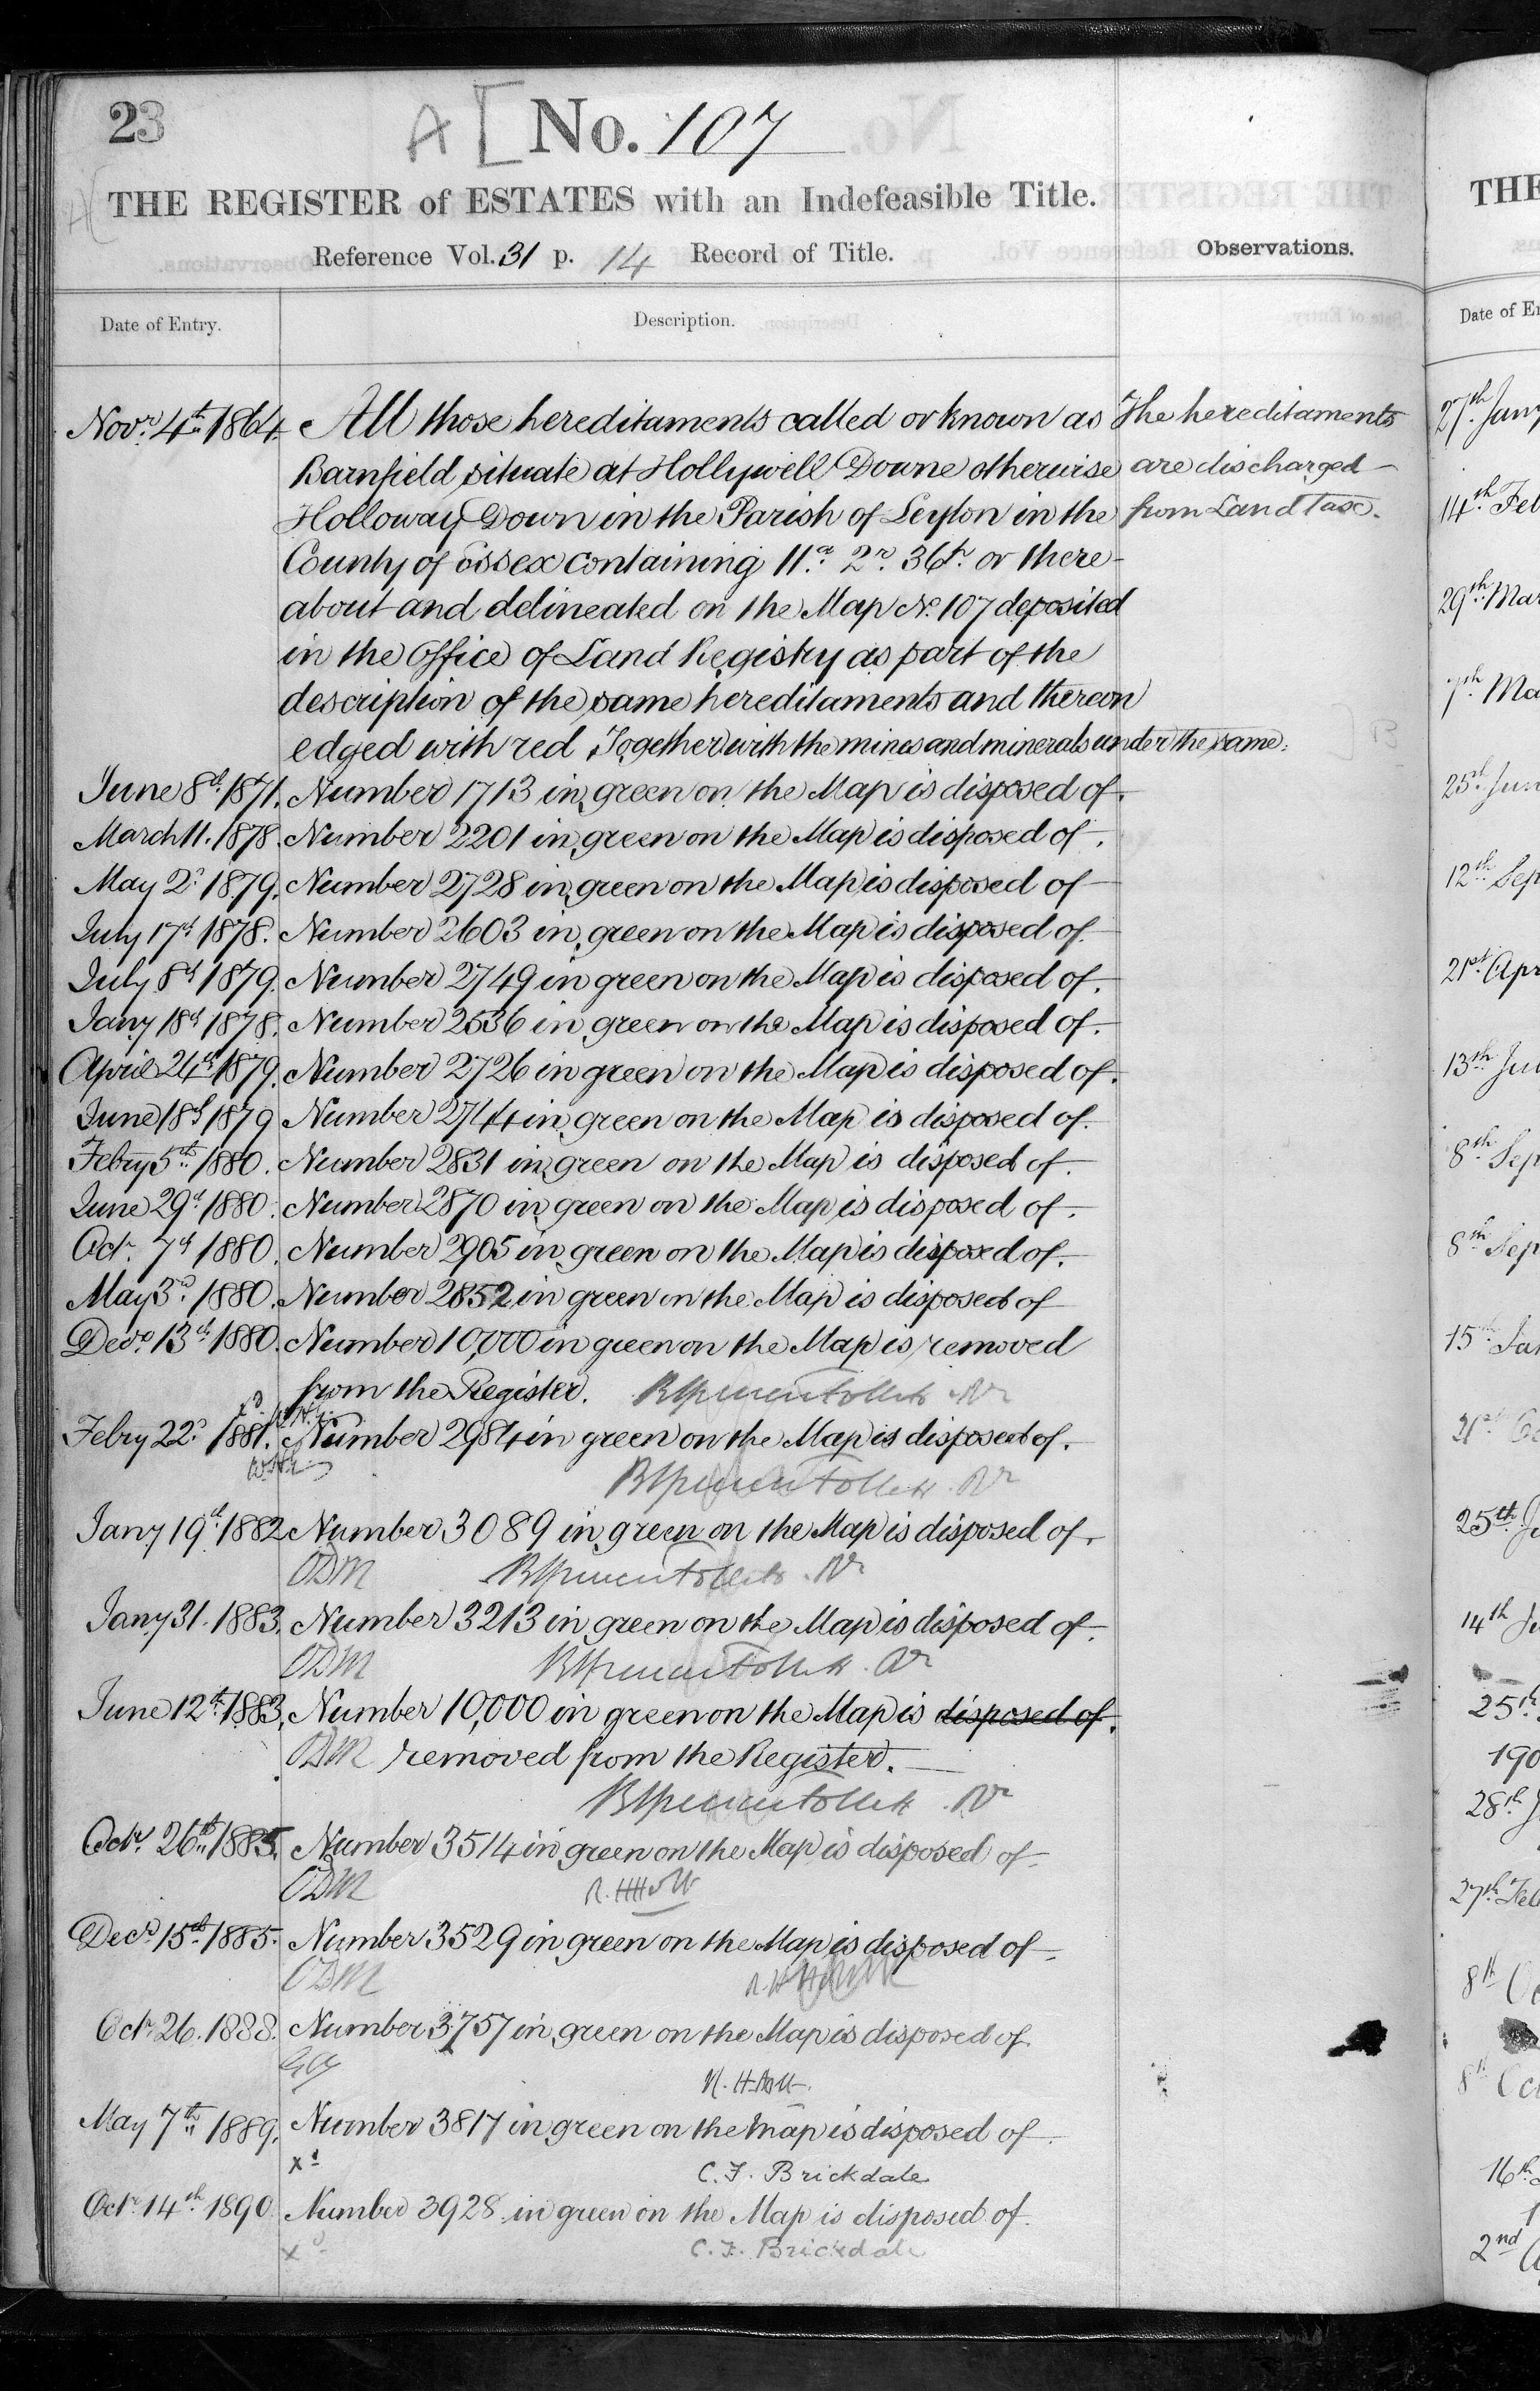 23
A [ No. 107
THE REGISTER of ESTATES with an Indefeasible Title.
Reference Vol. 31 p. 14 Record of Title.
Observations.
Date of Entry.
Description.
Novr. 4th 1864. All those hereditaments called or known as
Barnfield situate at Hollywell Downe otherwise
Holloway Down in the Parish of Leyton in the
County of Essex containing 11.a 2.r 36.p or there-
about and delineated on the Map No. 107 deposited
in the Office of Land Registry as part of the
description of the same hereditaments and thereon
edged with red Together with the mines and minerals under the same.
The hereditaments
are discharged
from Land Tax.
June 8th 1871. Number 1713 in green on the Map is disposed of.
March 11. 1878. Number 2201 in green on the Map is disposed of.
May 2d 1879. Number 2728 in green on the Map is disposed of
July 17th 1878. Number 2603 in green on the Map is disposed of.
July 8th 1879. Number 2749 in green on the Map is disposed of.
Jany 18th 1878. Number 2536 in green on the Map is disposed of.
April 24th 1879. Number 2726 in green on the Map is disposed of.
June 18th 1879 Number 2744 in green on the Map is disposed of.
Febry 5th 1880. Number 2831 in green on the Map is disposed of.
June 29th 1880. Number 2870 in green on the Map is disposed of.
Octr. 7th 1880. Number 2905 in green on the Map is disposed of.
May 3d 1880. Number 2852 in green on the Map is disposed of
Decr. 13th 1880. Number 10,000 in green on the Map is removed
from the Register.
Febry 22d 1881. Number 2984 in green on the Map is disposed of.
Jany 19th 1882 Number 3089 in green on the Map is disposed of.
ODM
Jany 31. 1883. Number 3213 in green on the Map is disposed of.
ODM
June 12th 1883. Number 10,000 in green on the Map is disposed of.
ODM removed from the Register.
Octr. 26th 1885. Number 3514 in green on the Map is disposed of.
ODM R. H. Holt
Decr. 15th 1885. Number 3529 in green on the Map is disposed of.
ODM R. H. Holt
Octr. 26. 1888. Number 3757 in green on the Map is disposed of.
R. H. Holt
May 7th 1889. Number 3817 in green on the Map is disposed of.
C. F. Brickdale
Octr. 14th 1890. Number 3928 in green on the Map is disposed of.
C. F. Brickdale
THE
Date of En
27th Jany
14th Feb
29th Mar
7th Ma
25th Jun
12th Sep
21st Apr
13th Ju
8th Sep
8th Sep
15th Ja
21st Oc
25th J
14th Ju
25th
190
28th J
27th Feb
8th Oc
8th Oc
16th
2nd